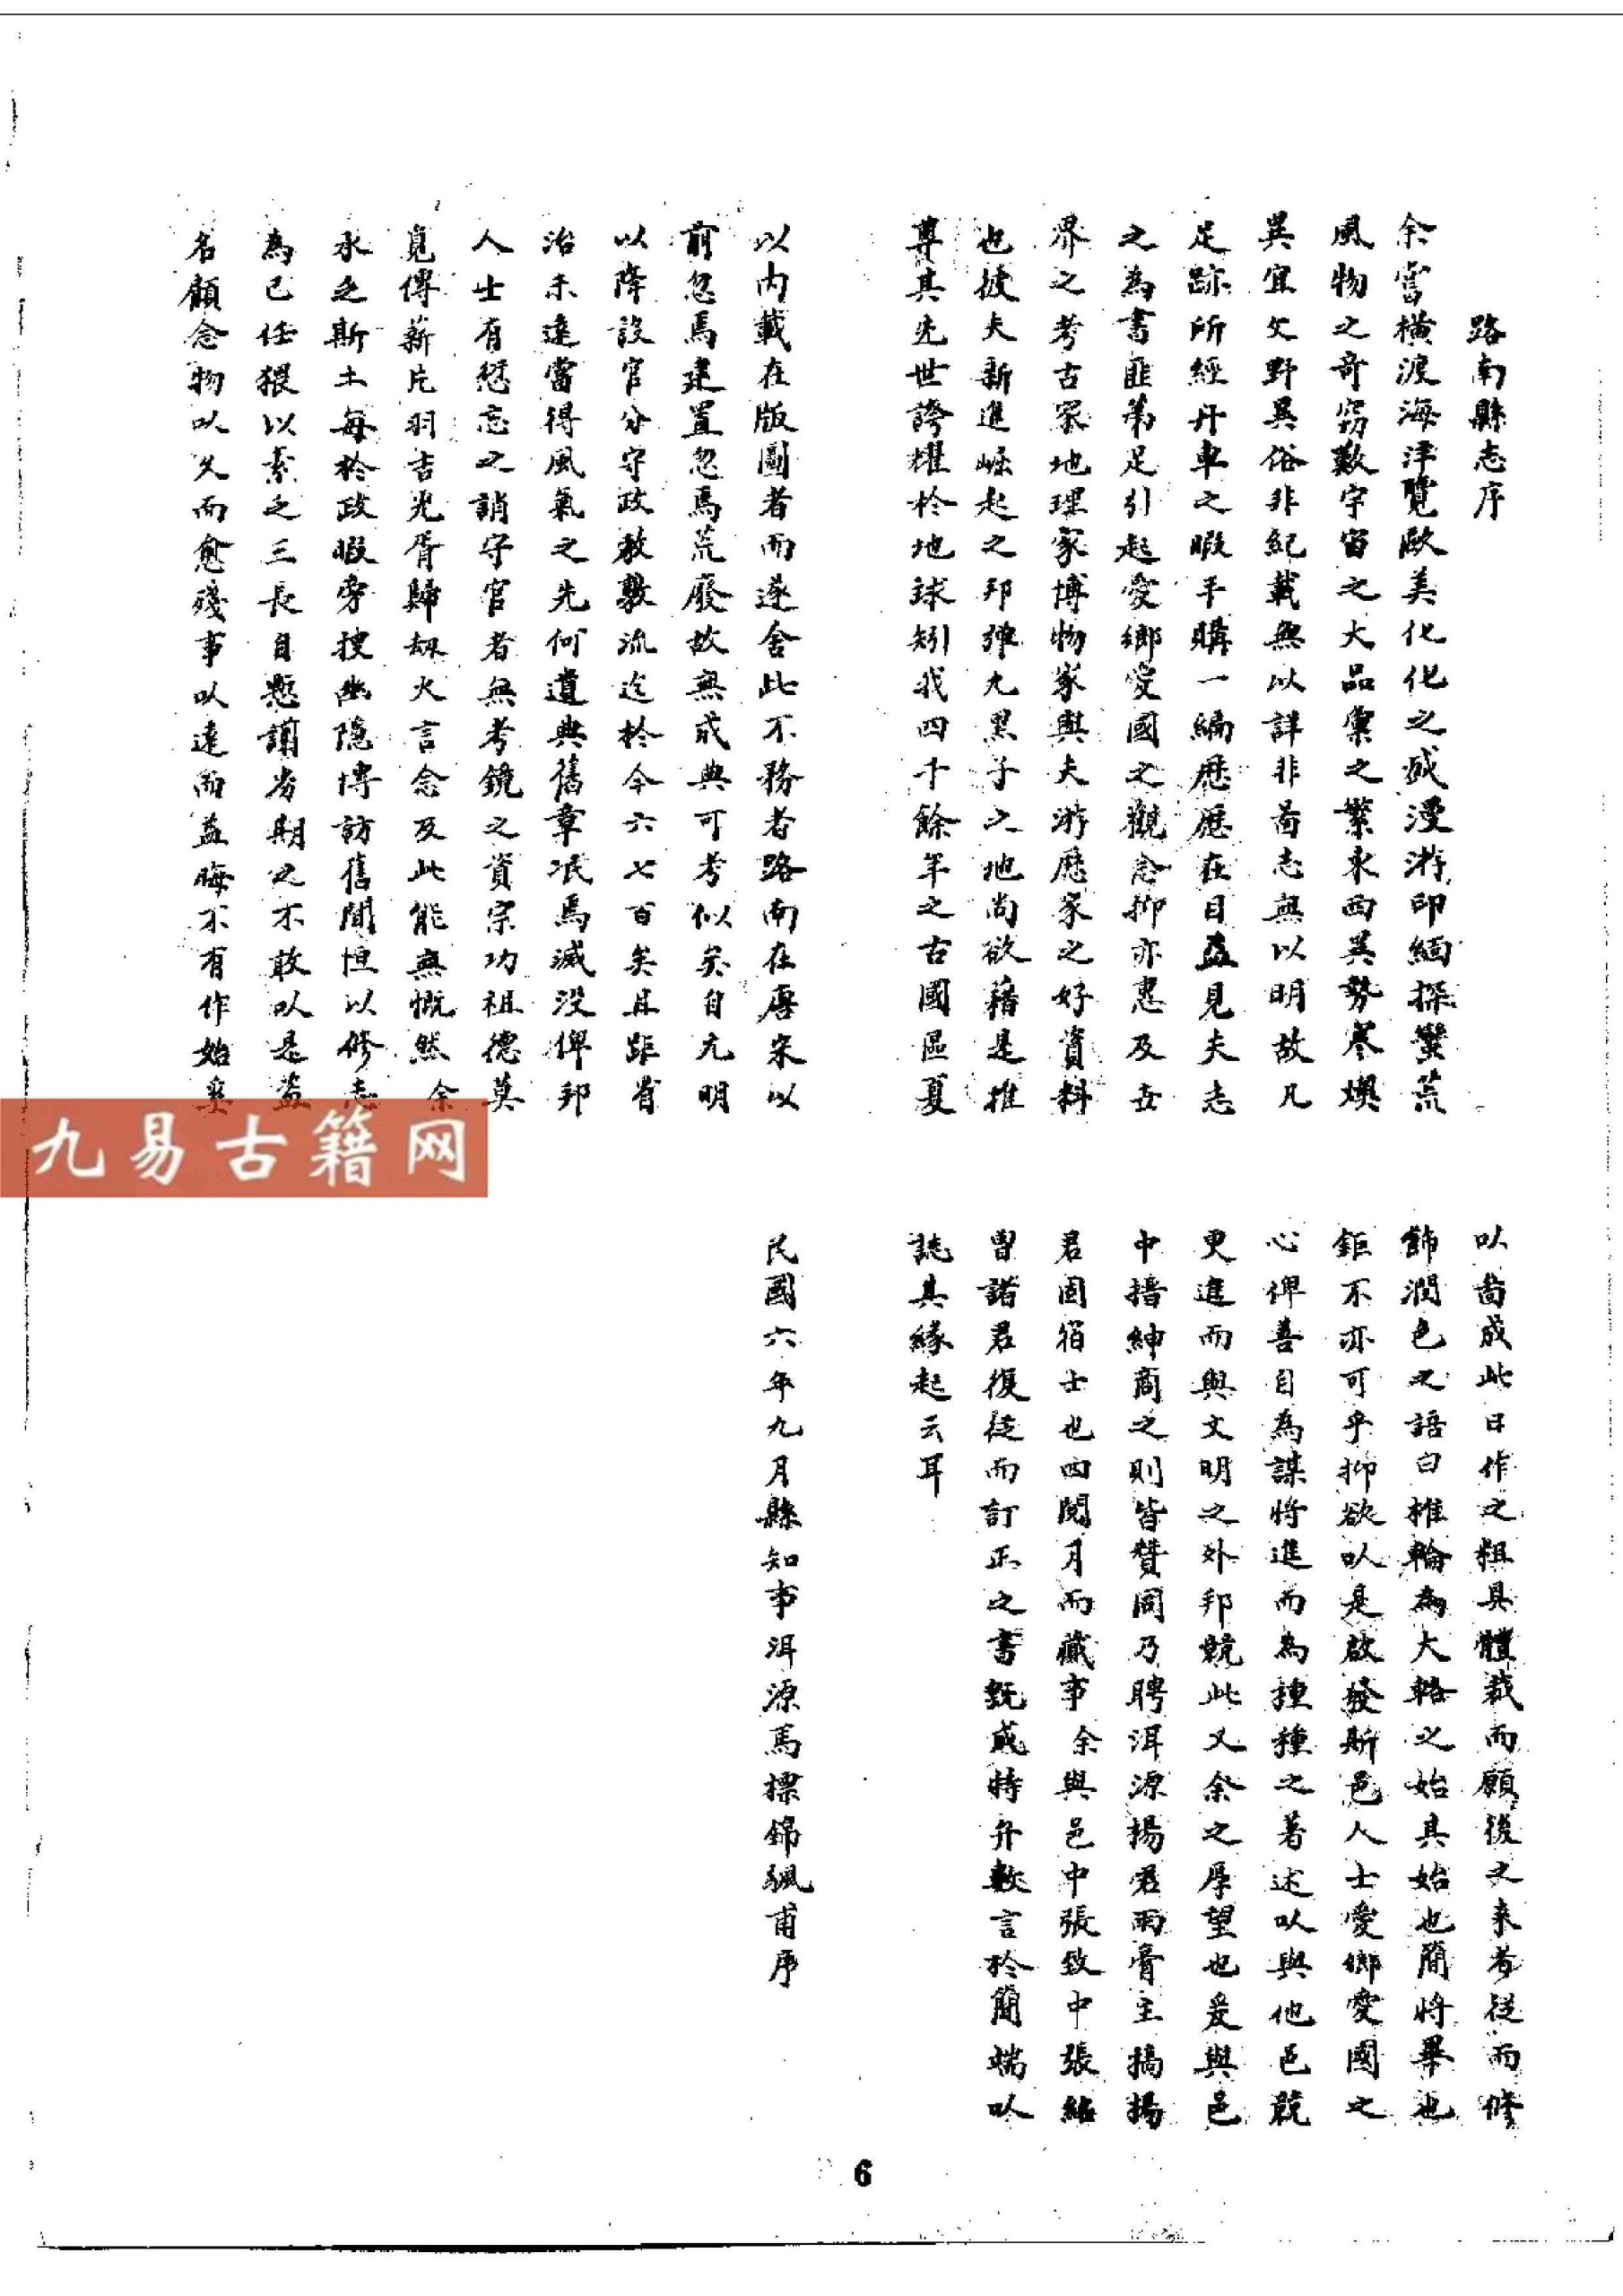 路南縣志序
余嘗橫渡海洋覽歐美化化之盛漫游印緬探蠻荒
風物之奇窮數宇宙之大品彙之繁東西異勢寒燠
異宜文野異俗非紀載無以詳非啚志無以明故凡
足跡所經舟車之暇手購一編歷歷在目益見夫志
之為書匪第足引起愛鄉愛國之觀念抑亦惠及世
界之考古家地理家博物家與夫游歷家之好資料
也彼夫新進崛起之邦彈丸黑子之地尚欲藉是推
尊其先世誇耀於地球矧我四千餘年之古國區夏
以內載在版圖者而遂舍此不務者路南在唐宋以
前忽焉建置忽焉荒廢故無成典可考似矣自元明
以降設官分守政教敷流迄於今六七百矣且距省
治未遠當得風氣之先何遺典舊章泯焉滅没俾邦
人士有愆忘之誚守官者無考鏡之資宗功祖德莫
覓傳薪片羽吉光胥歸劫火言念及此能無慨然余
承乏斯土每於政暇旁搜幽隱博訪舊聞恒以修志
為己任猥以素乏三長自慙譾劣期之不敢以是盗
名顧念物以久而愈殘事以遠而益晦不有作始奚
以啚成此日作之粗具體裁而願後之來者從而修
飾潤色之語曰椎輪為大輅之始其始也簡將畢也
鉅不亦可乎抑欲以是啟發斯邑人士愛鄉愛國之
心俾善自為謀將進而為種種之著述以與他邑競
更進而與文明之外邦競此又余之厚望也爰與邑
中搢紳商之則皆贊同乃聘洱源楊君雨膏主搞楊
君固宿士也四閱月而蕆事余與邑中張致中張紹
曾諸君復從而訂正之書既成特弁數言於簡端以
誌其緣起云耳
民國六年九月縣知事洱源馬標錦颿甫序
6
九易古籍网